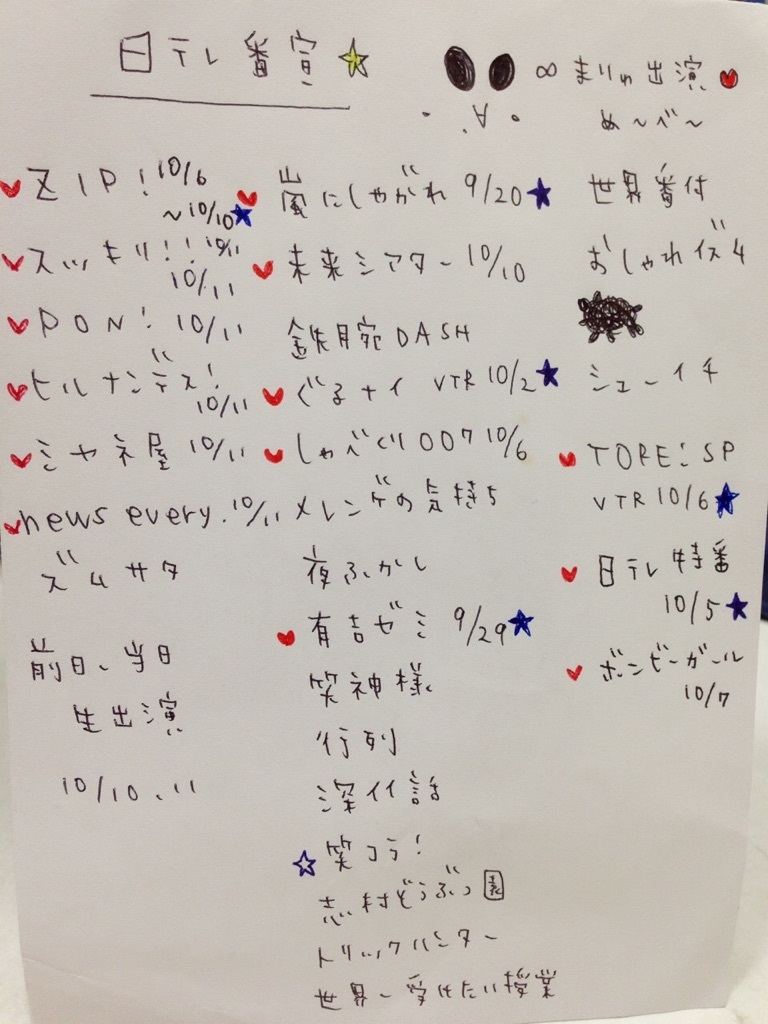 日テレ番宣
∞ まりゅ出演
め〜べ〜
ZIP! 10/6
〜10/10
スッキリ!! 10/11
10/11
PON! 10/11
ヒルナンデス!
10/11
ミヤネ屋 10/11
news every. 10/11
ズムサタ
前日、当日
生出演
10/10、11
嵐にしやがれ 9/20
未来シアター 10/10
鉄腕DASH
ぐるナイ VTR 10/2
しゃべくり007 10/6
メレンゲの気持ち
夜ふかし
有吉ゼミ 9/29
笑神様
行列
深イイ話
笑コラ!
志村どうぶつ園
トリックハンター
世界一受けたい授業
世界番付
おしゃれイズム
シューイチ
TORE! SP
VTR 10/6
日テレ特番
10/5
ボンビーガール
10/7